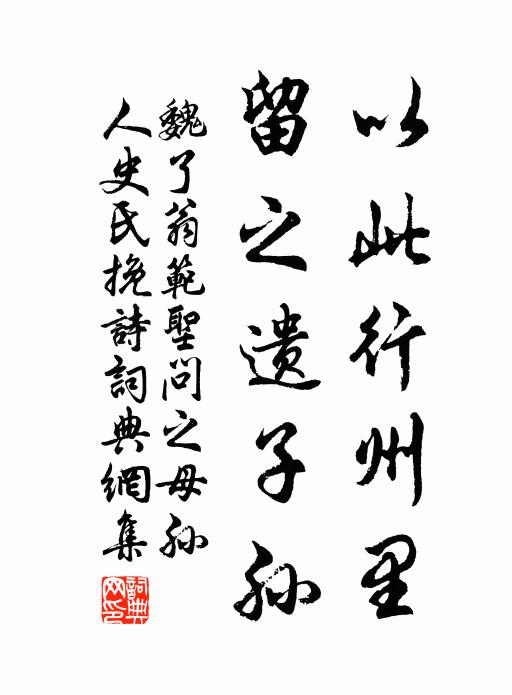 以此行州里
留之遗子孙
魏了翁範聖問之母孙
人史氏挽詩詞典網集
詞典网印